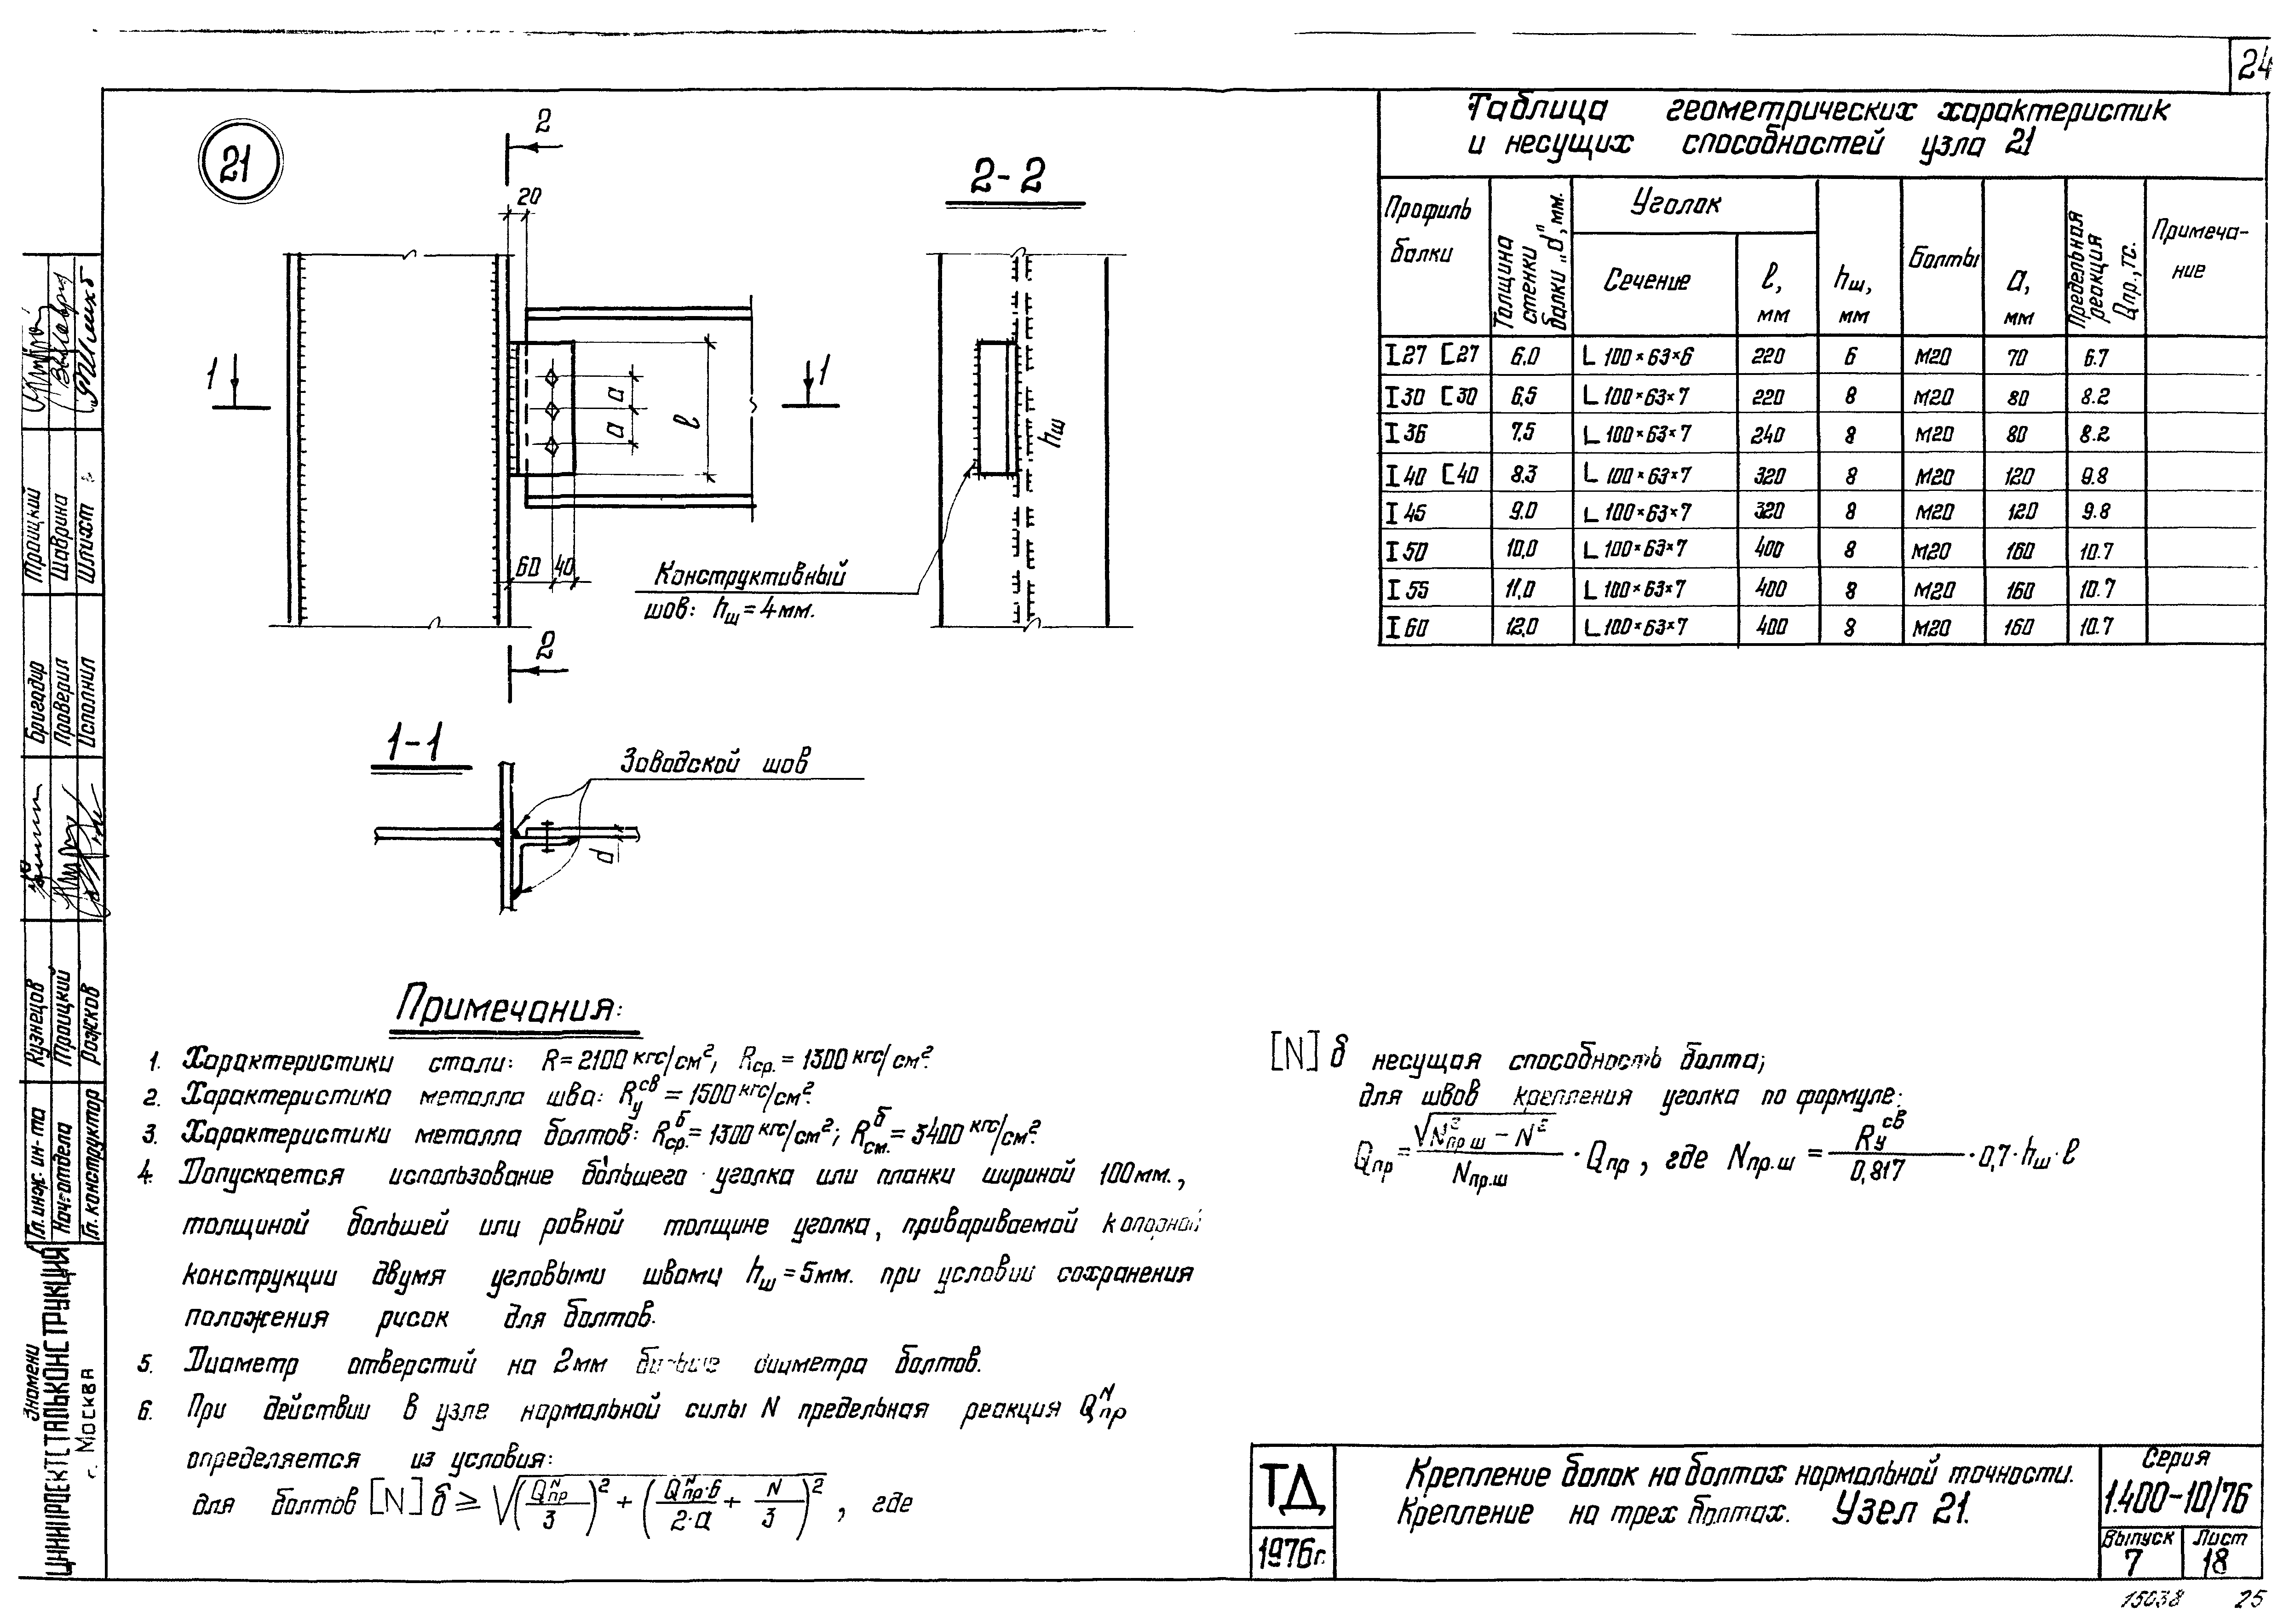 24
21
2
20
1
1
a
a
l
60 40
2
2-2
hш
Конструктивный
шов: hш = 4мм.
1-1
Заводской шов
d
Таблица геометрических характеристик
и несущих способностей узла 21
Профиль балки | Толщина стенки балки „d", мм. | Уголок | hш, мм | Болты | a, мм | Предельная реакция Qпр., тс. | Примечание
Сечение | l, мм
I27 [27 | 6.0 | L 100×63×6 | 220 | 6 | М20 | 70 | 6.7
I30 [30 | 6,5 | L 100×63×7 | 220 | 8 | М20 | 80 | 8.2
I36 | 7,5 | L 100×63×7 | 240 | 8 | М20 | 80 | 8.2
I40 [40 | 8.3 | L 100×63×7 | 320 | 8 | М20 | 120 | 9.8
I45 | 9.0 | L 100×63×7 | 320 | 8 | М20 | 120 | 9.8
I50 | 10,0 | L 100×63×7 | 400 | 8 | М20 | 160 | 10.7
I55 | 11,0 | L 100×63×7 | 400 | 8 | М20 | 160 | 10.7
I60 | 12,0 | L 100×63×7 | 400 | 8 | М20 | 160 | 10.7
Примечания:
1. Характеристики стали: R = 2100 кгс/см², Rср. = 1300 кгс/см².
2. Характеристика металла шва: Rусв = 1500 кгс/см².
3. Характеристики металла болтов: Rср.б = 1300 кгс/см²; Rсм.б = 3400 кгс/см².
4. Допускается использование большего уголка или планки шириной 100мм.,
толщиной большей или равной толщине уголка, привариваемой к опорной
конструкции двумя угловыми швами hш = 5мм. при условии сохранения
положения рисок для болтов.
5. Диаметр отверстий на 2мм больше диаметра болтов.
6. При действии в узле нормальной силы N предельная реакция QпрN
определяется из условия:
для болтов [N]б ≥ √((QпрN/3)² + (QпрN·6/2·a + N/3)²), где
[N]б несущая способность болта;
для швов крепления уголка по формуле:
Qпр = √(N²пр.ш − N²)/Nпр.ш · Qпр, где Nпр.ш = Rусв/0,817 · 0,7 · hш · l
ТД
1976г.
Крепление балок на болтах нормальной точности.
Крепление на трех болтах. Узел 21.
Серия
1.400-10/76
Выпуск
7
Лист
18
15038 25
Бригадир Троицкий
Проверил Шаврина
Исполнил Шлихт
Гл. инж. ин-та Кузнецов
Нач. отдела Троицкий
Гл. конструктор Рожков
Знамени
ЦНИИПРОЕКТСТАЛЬКОНСТРУКЦИЯ
г. Москва